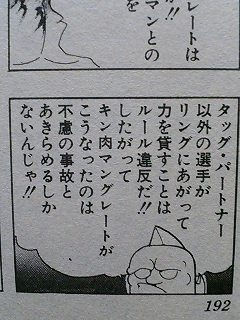 レートは
が!!
マンとの
を
タッグ・パートナー
以外の選手が
リングにあがって
力を貸すことは
ルール違反だ!!
したがって
キン肉マングレートが
こうなったのは
不慮の事故と
あきらめるしか
ないんじゃ!!
192